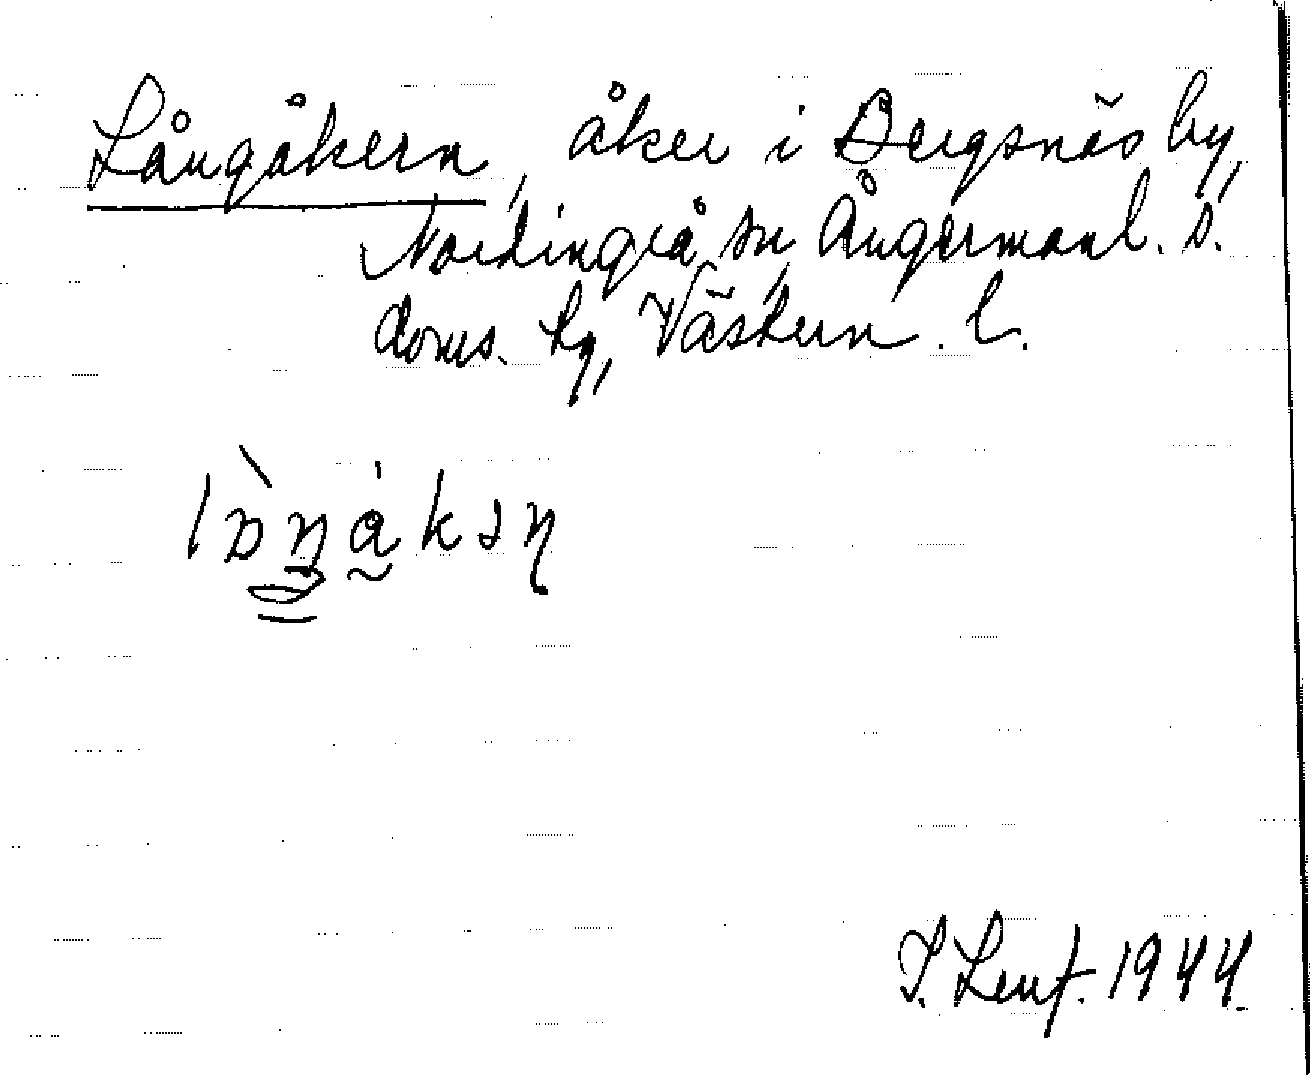 Långåkern, åker i Bergsnäs by,
Nordingrå sn, Ångermanl. s.
doms. hg, Västern. l.
I. Lenf. 1944.